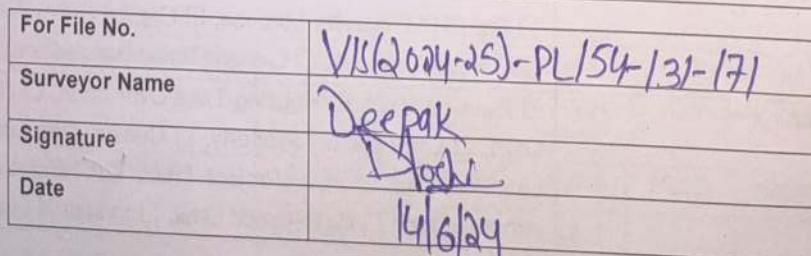 For File No. VIS(2024-25)-PL154-131-171
Surveyor Name Deepak
Signature Joshi
Date 14/6/24